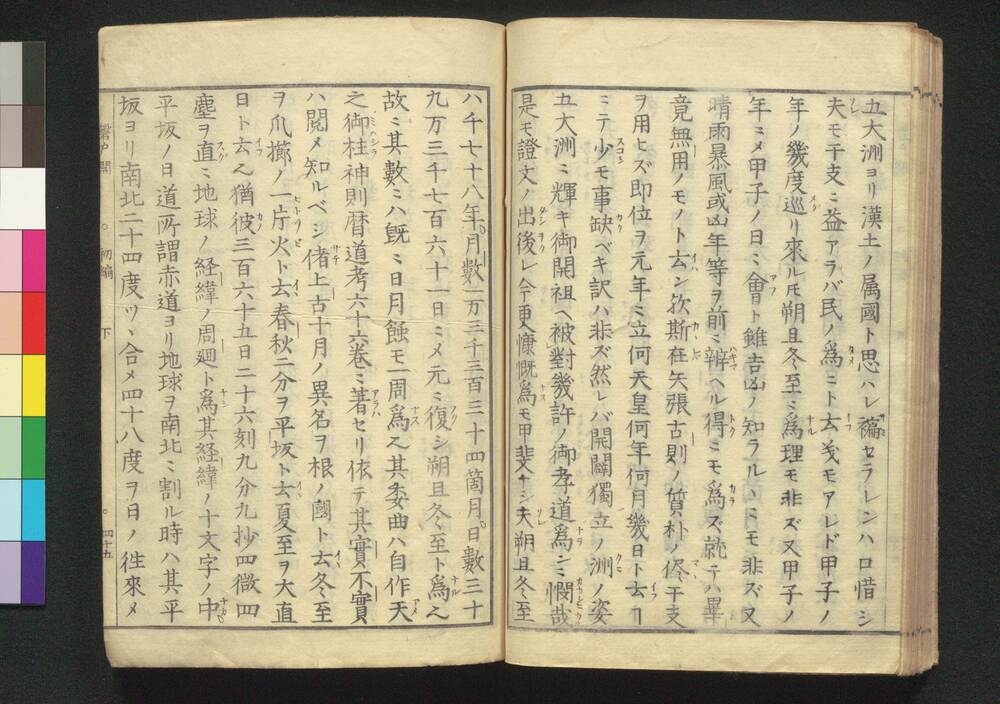 五大洲ヨリ漢土ノ属國ト思ハレ穢セラレンハ口惜シ
夫モ干支ニ益アラバ民ノ為ニト云戔モアレド甲子ノ
年ノ幾度巡リ來ル𪜈朔旦冬至ニ為理モ非ズ又甲子ノ
年ニメ甲子ノ日ニ會ト雖吉凶ノ知ラルヽニモ非ズ又
晴雨暴風或凶年等ヲ前ニ辨ヘル得ニモ為ズ就テハ畢
竟無用ノモノト云ン欤斯在矢張古則ノ質朴ノ侭干支
ヲ用ヒズ即位ヲ元年ニ立何天皇何年何月幾日ト云ヿ
ニテ少モ事缺ベキ訳ハ非ズ然レバ開闢獨立ノ洲ノ姿
五大洲ニ輝キ御開祖ヘ被對幾許ノ御孝道為ンニ憫哉
是モ證文ノ出後レ今更慷慨為モ甲斐ナシ夫朔旦冬至
八千七十八年。月數一万三千三百三十四箇月。日數三十
九万三千七百六十一日ニメ元ニ復シ朔旦冬至ト為ル
故ニ其數ニハ既ニ日月蝕モ一周為ス其委曲ハ自作天
之御柱神則暦道考六十六巻ニ著セリ依テ其實不實
ハ閲メ知ルベシ偖上古十月ノ異名ヲ根ノ國ト云冬至
ヲ爪櫛ノ一片火ト云春秋二分ヲ平坂ト云夏至ヲ大直
日ト云ル猶彼三百六十五日二十六刻九分九抄四微四
塵ヲ直ニ地球ノ経緯ノ周廻ト為其経緯ノ十文字ノ中
平坂ノ日道所謂赤道ヨリ地球ヲ南北ニ割ル時ハ其平
坂ヨリ南北二十四度ツヽ合メ四十八度ヲ日ノ徃來メ
初編 下 四十五